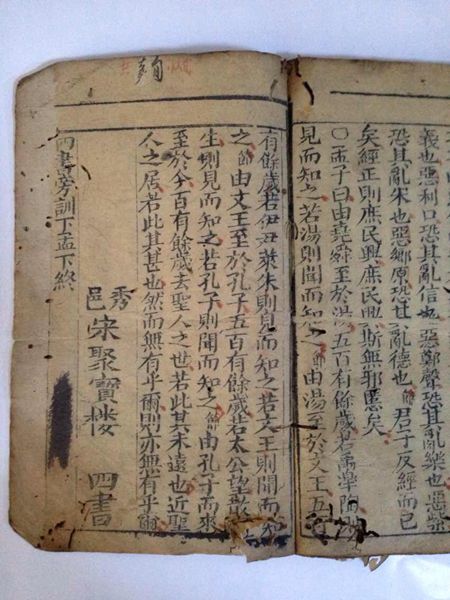 義也惡利口恐其亂信也惡鄭聲恐其亂樂也惡紫
恐其亂朱也惡鄉原恐其亂德也節君子反經而已
矣經正則庶民興庶民興斯無邪慝矣
〇孟子曰由堯舜至於湯五百有餘歲若禹臯陶
見而知之若湯則聞而知之節由湯至於文王五
有餘歲若伊尹萊朱則見而知之若文王則聞而知
之節由文王至於孔子五百有餘歲若太公望散
生則見而知之若孔子則聞而知之節由孔子而來
至於今百有餘歲去聖人之世若此其未遠也近聖
人之居若此其甚也然而無有乎爾則亦無有乎爾
秀邑宋聚寶楼 四書
四書旁訓下孟下終